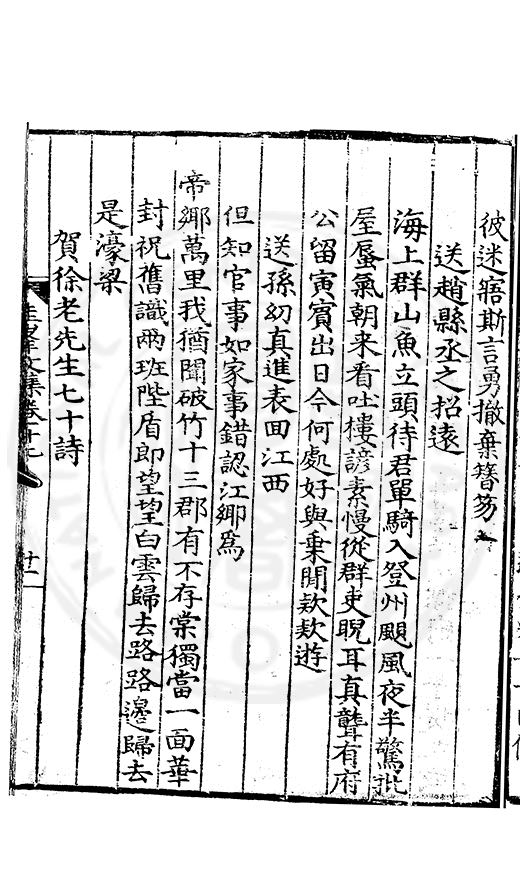 彼迷寤斯言勇撤棄簪笏
送趙縣丞之招遠
海上群山魚立頭待君單騎入登州颶風夜半驚批
屋蜃氣朝来看吐樓諺素慢從群吏睨耳真聾有府
公留寅賓出日今何處好與乗閒欵欵遊
送孫幻真進表回江西
但知官事如家事錯認江鄉為
帝鄉萬里我猶聞破竹十三郡有不存棠獨當一面華
封祝舊識兩班陛盾郎望望白雲歸去路路邊歸去
是濠梁
賀徐老先生七十詩
十二